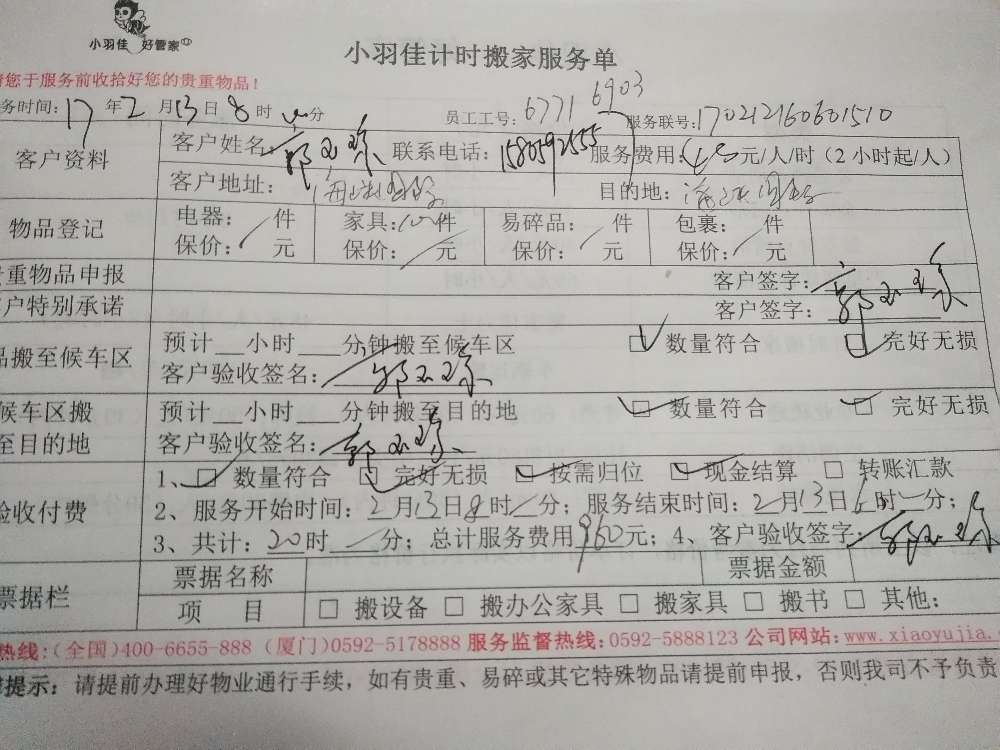 小羽佳 好管家
小羽佳计时搬家服务单
请您于服务前收拾好您的贵重物品！
务时间：17 年 2 月 13 日 8 时 分 员工工号：6771 6903 服务联号：170212160601510
客户资料 客户姓名： 联系电话：15805925555 服务费用：48元/人/时（2 小时起/人）
客户地址： 目的地：
物品登记 电器： 件 家具： 件 易碎品： 件 包裹： 件
保价： 元 保价： 元 保价： 元 保价： 元
贵重物品申报 客户签字：
客户特别承诺 客户签字：
品搬至候车区 预计__小时___分钟搬至候车区 ☑ 数量符合 ☑ 完好无损
客户验收签名：
候车区搬 预计__小时___分钟搬至目的地 ☑ 数量符合 ☑ 完好无损
至目的地 客户验收签名：
验收付费 1、☑ 数量符合 ☑ 完好无损 ☑ 按需归位 ☑ 现金结算 □ 转账汇款
2、服务开始时间：2月13日8时 分；服务结束时间：2月13日6时 分；
3、共计：20时 分；总计服务费用960元；4、客户验收签字：
票据栏 票据名称 票据金额
项 目 □ 搬设备 □ 搬办公家具 □ 搬家具 □ 搬书 □ 其他：
热线：(全国)400-6655-888 (厦门)0592-5178888 服务监督热线：0592-5888123 公司网站：www.xiaoyujia.
提示：请提前办理好物业通行手续，如有贵重、易碎或其它特殊物品请提前申报，否则我司不予负责